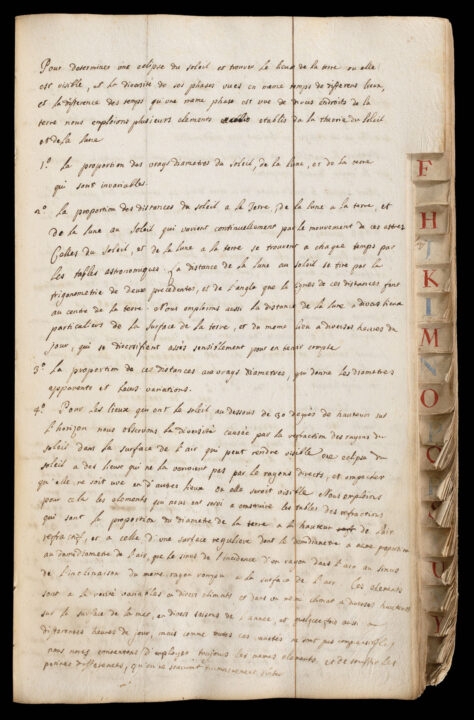 Pour determiner une eclipse du soleil et trouver le lieux de la terre ou elle
est visible, et la diversité de ses phases vues en même temps de differens lieux,
et la difference des temps qu'une même phase est vue de divers endroits de la
terre nous emploions plusieurs elemens etablis da la theorie du soleil
et de la lune
1.° la proportion des vrays diametres du soleil, de la lune, et de la terre
qui sont invariables.
2.° la proportion des distances du soleil a la terre, de la lune a la terre, et
de la lune au soleil qui varient continuellement par le mouvement de ces astres
Celles du soleil, et de la lune a la terre se trouvent a chaque temps par
les tables astronomiques. La distance de la lune au soleil se tire par la
trigonometrie de deux precedentes, et de l'angle que les lignes de ces distances font
au centre de la terre. Nous emploions aussi la distance de la lune a divers lieux
particuliers de la surface de la terre, et du meme lieu a diverses heures du
jour, qui se diversifient assès sensiblement pour en tenir compte
3.° la proportion de ces distances aux vrays diametres, qui donne les diametres
apparents et leurs variations.
4.° Pour les lieux qui ont le soleil au dessous de 30 degrés de hauteur sur
l'horizon nous observons la diversité causée par la refraction des rayons du
soleil dans la surface de l'air qui peut rendre visible une eclipse du
soleil a des lieux qui ne la verroient pas par le rayons directs, et empecher
qu'elle ne soit vue en d'autres lieux ou elle seroit visible. Nous emploions
pour cela les elemens qui nous ont servi a construire les tables des refractions
qui sont la proportion du diametre de la terre a la hauteur de l'air
refractif, et a celle d'une surface reguliere dont le demidiametre a même proportion
au demidiametre de l'air, que le sinus de l'incidence d'un rayon dans l'air au sinus
de l'inclinaison du meme rayon rompu a la surface de l'air. Ces elemens
sont a la verité variables en divers climats et dans un même climat a diverses hauteurs
sur la surface de la mer, en divers saisons de l'année, et quelquefois aussi a
differentes heures du jour, mais comme toutes ces varietés ne sont pas
nous nous contentons d'employer toujours les mêmes elemens, et de
petites differences, qu'on ne sauroit eviter
F
H
J
K
I
M
N
O